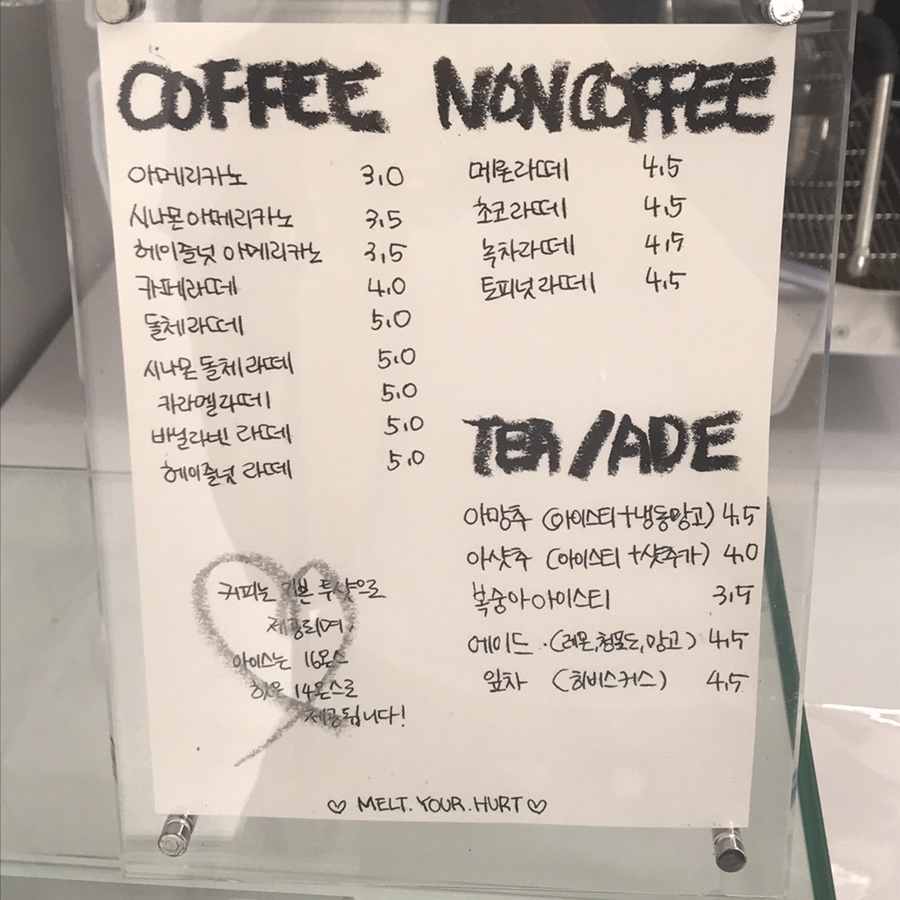 COFFEE
아메리카노 3.0
시나몬아메리카노 3.5
헤이즐넛 아메리카노 3.5
카페라떼 4.0
돌체라떼 5.0
시나몬돌체라떼 5.0
카라멜라떼 5.0
바닐라빈 라떼 5.0
헤이즐넛 라떼 5.0
커피는 기본 투샷으로
제공되며,
아이스는 16온스
핫은 14온스로
제공됩니다!
NONCOFFEE
메론라떼 4.5
초코라떼 4.5
녹차라떼 4.5
토피넛라떼 4.5
TEA/ADE
아망추 (아이스티+냉동망고) 4.5
아샷추 (아이스티+샷추가) 4.0
복숭아아이스티 3.5
에이드.(레몬,청포도,망고) 4.5
잎차 (히비스커스) 4.5
♡ MELT.YOUR.HURT♡